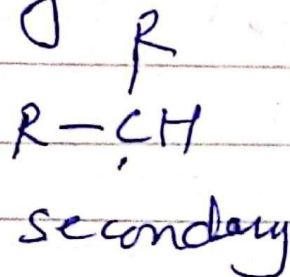 R
R-ĊH
secondary